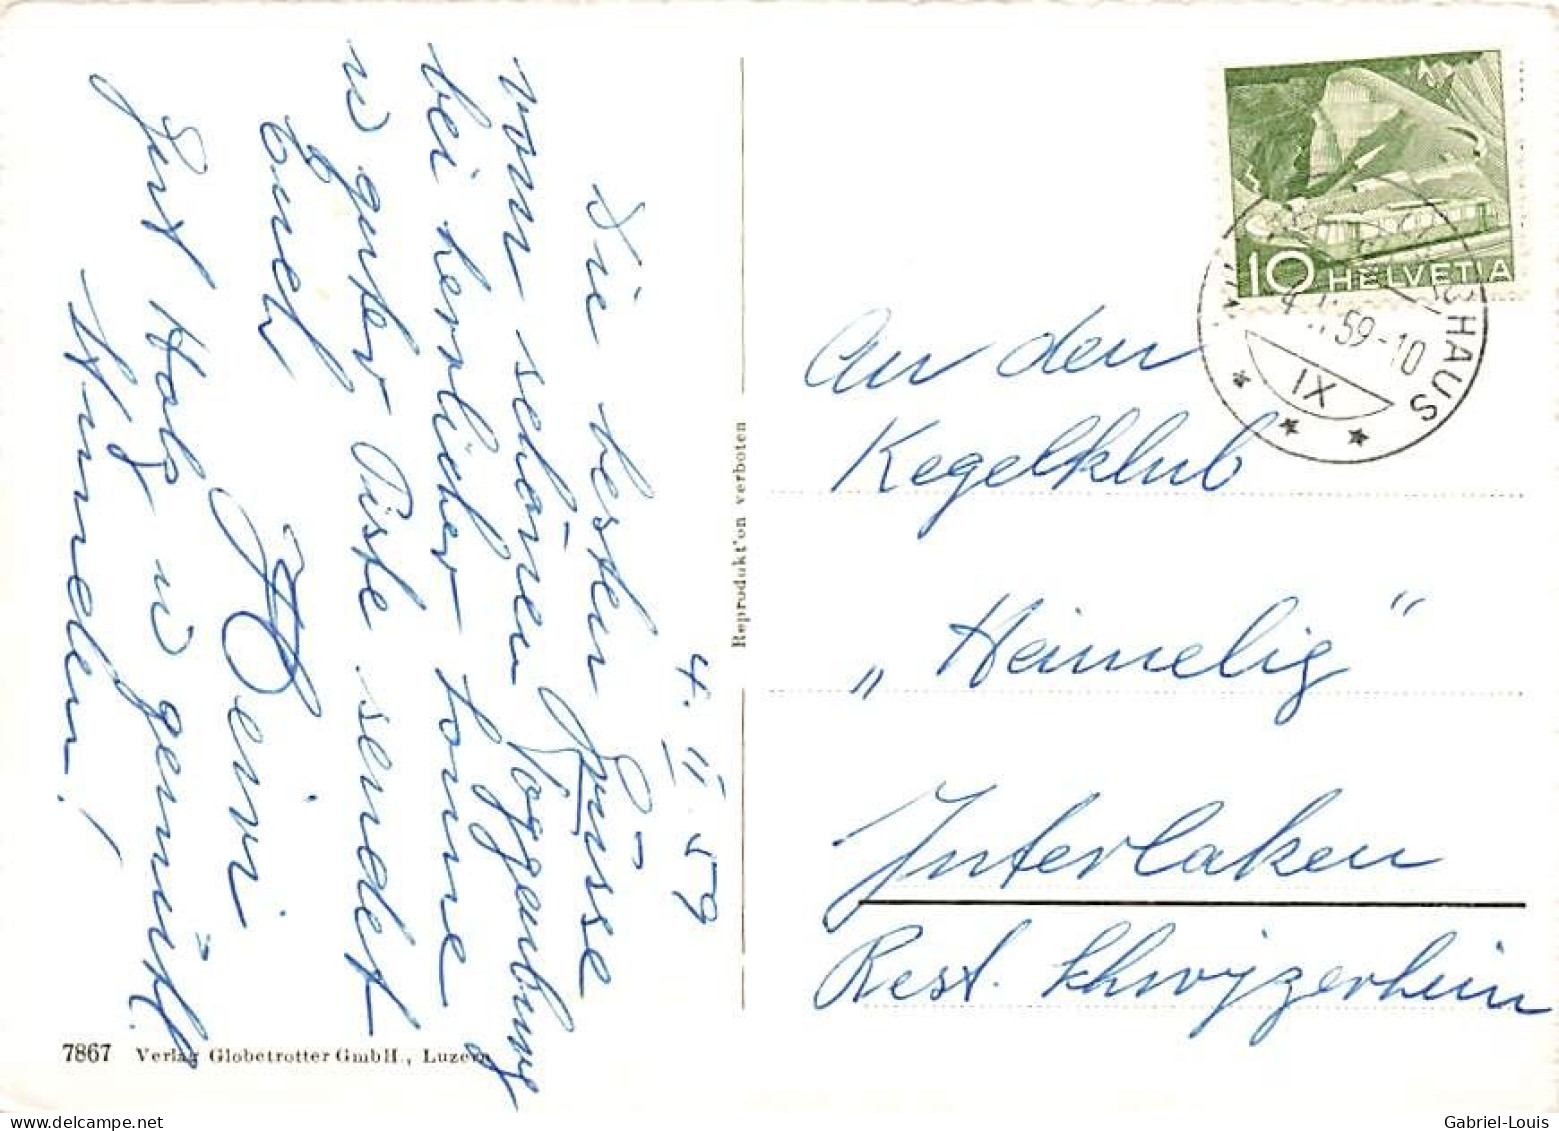 4. II. 59
Die besten Grüsse
vom schönen Toggenburg
bei herrlicher Sonne
u guter Piste sendet
Euch
Heivi
Gut Holz u gemütl
Stunden!
7867 Verlag Globetrotter GmbH., Luzern
Reprodukt'on verboten
10 HELVETIA
HAUS
59-10
IX
An den
Kegelklub
„Heimelig“
Interlaken
Rest. Schwyzerheim
Gabriel-Louis